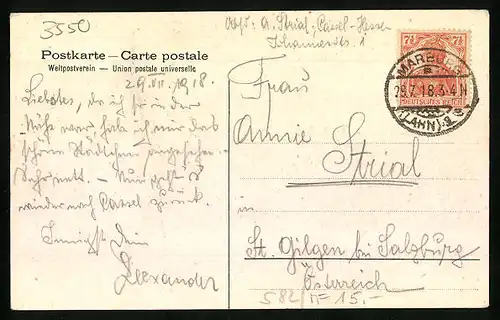 3550
Abs: A. Strial, Cassel-Hessen
Johannesstr. 1
Postkarte — Carte postale
Weltpostverein — Union postale universelle
7½ 7½
DEUTSCHES REICH
MARBURG
29.7.18.3-4N
(LAHN)
29.VII.1918.
Liebstes, da ich hier in der
Nähe war, hab ich mir das
schöne Städtchen angesehen.
Sehr nett. — Nun geht's
wieder nach Cassel zurück.
Innigst Dein
Alexander
Frau
Annie
Strial
in
St. Gilgen bei Salzburg
Österreich
582/ n= 15.-